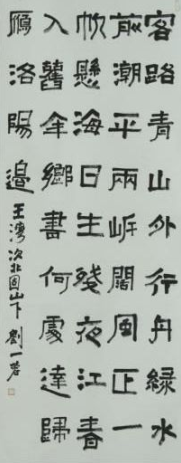 客路青山外行舟綠水
前潮平兩岸闊風正一
帆懸海日生殘夜江春
入舊年鄉書何處達歸
鴈洛陽邊 王灣次北固山下 劉一